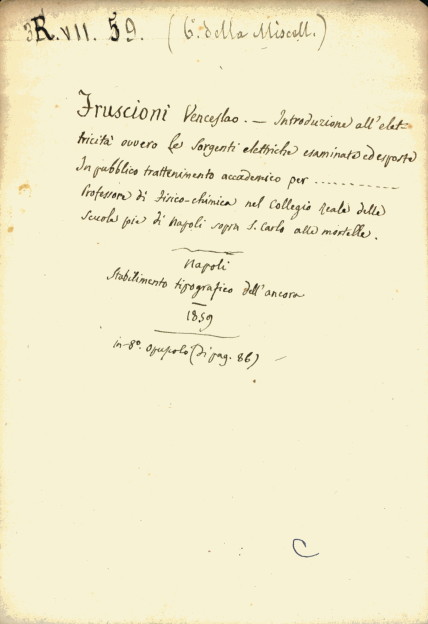 3R.VII. 59. (6° della Miscell.)
Fruscioni Venceslao. — Introduzione all'elet-
tricità ovvero le sorgenti elettriche esaminate ed esposte
In pubblico trattenimento accademico per ...........
Professore di Fisico-chimica nel Collegio Reale delle
Scuole pie di Napoli sopra S. Carlo alle mortelle.
Napoli
Stabilimento tipografico dell'ancora
1859
in-8°. opuscolo (di pag. 86)
C